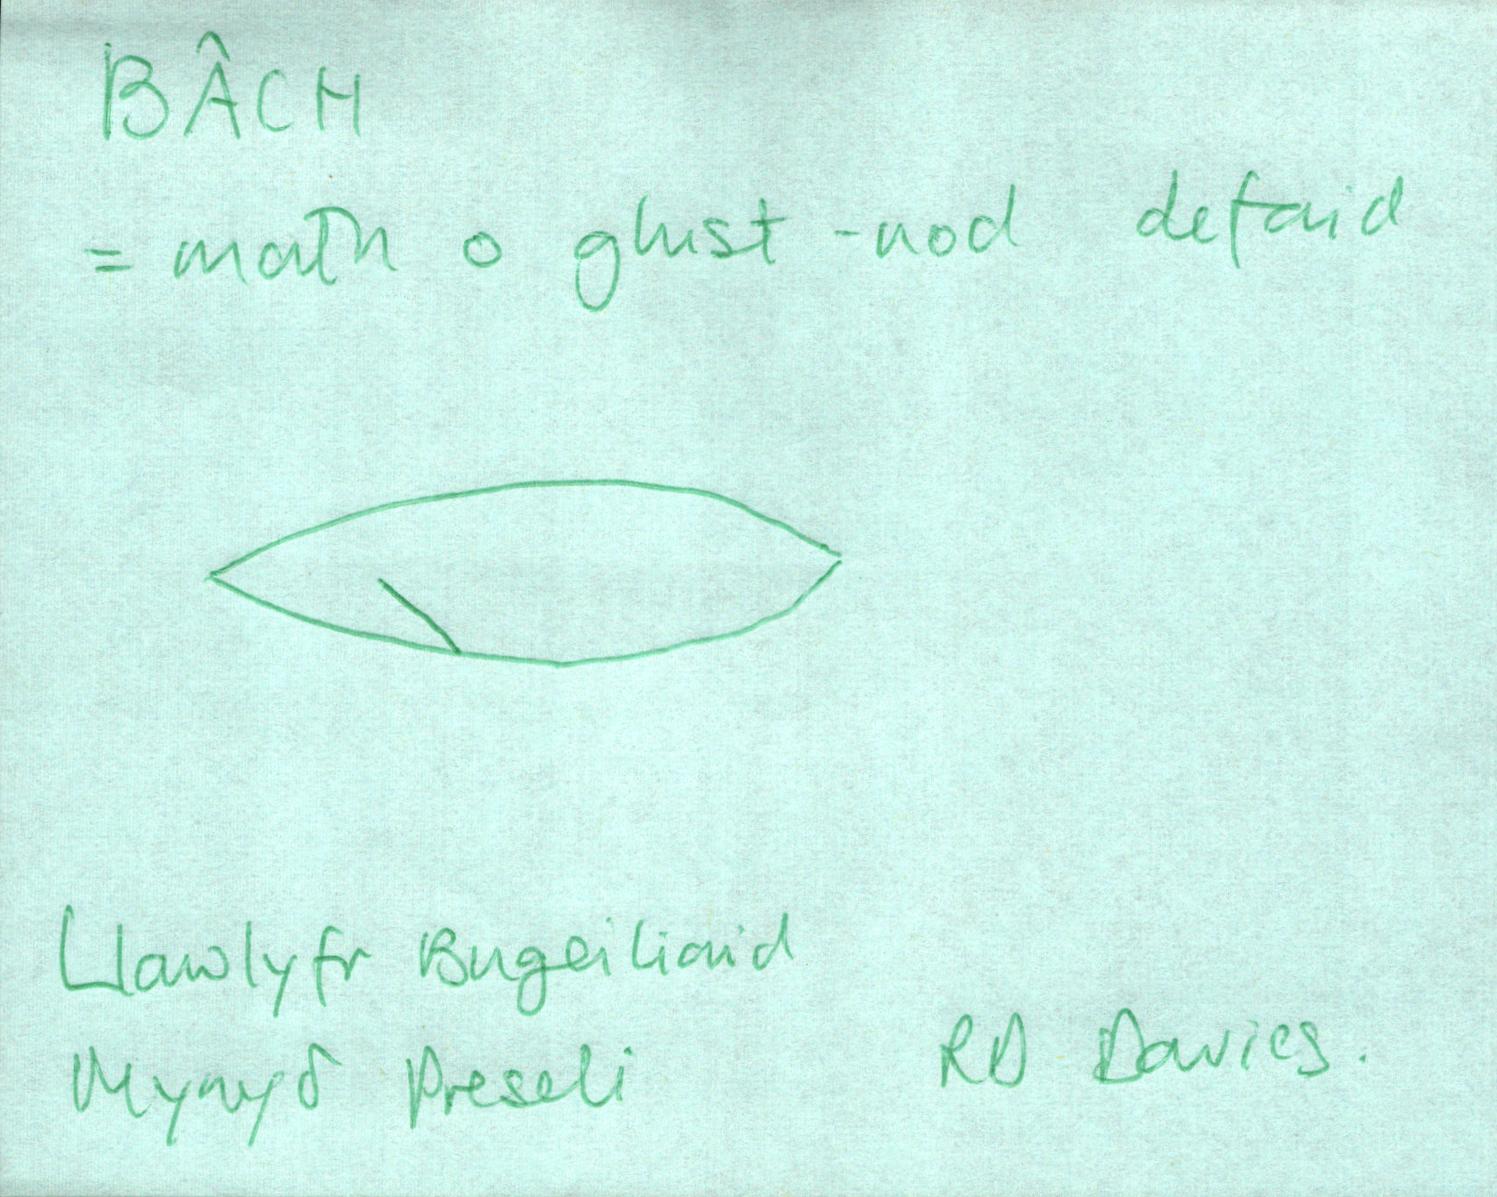 BÂCH
= math o glust-nod defaid
Llawlyfr Bugeiliaid
Mynyδ Preseli
RD Davies.